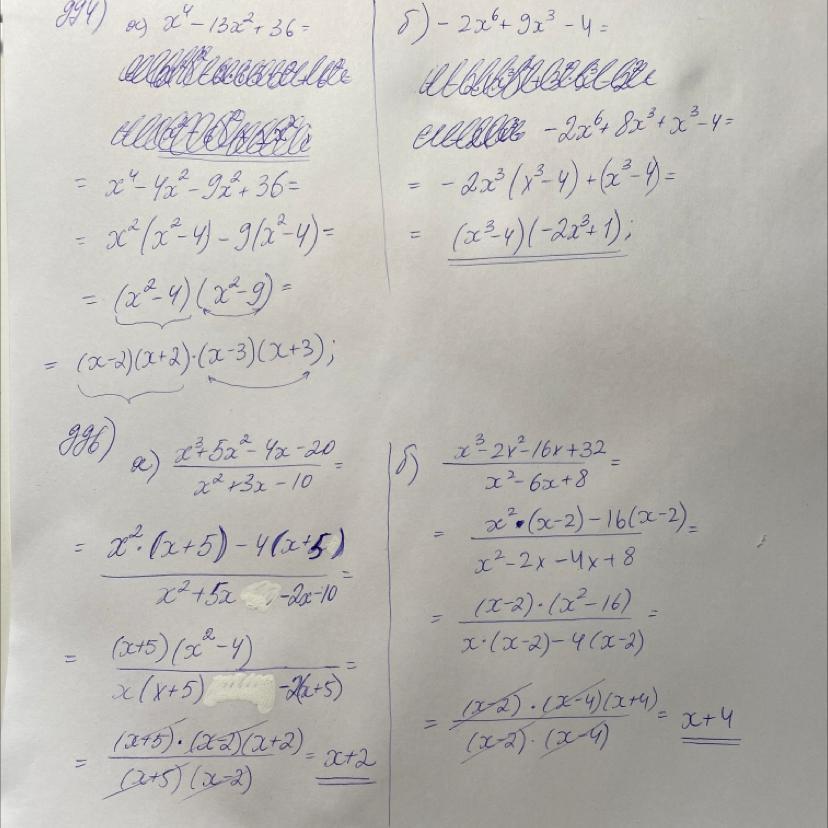 994) а) x⁴ - 13x² + 36 =
= x⁴ - 4x² - 9x² + 36 =
= x²(x² - 4) - 9(x² - 4) =
= (x² - 4)(x² - 9) =
= (x-2)(x+2)·(x-3)(x+3);
б) - 2x⁶ + 9x³ - 4 =
-2x⁶ + 8x³ + x³ - 4 =
= -2x³(x³ - 4) + (x³ - 4) =
= (x³ - 4)(-2x³ + 1);
996) а) x³ + 5x² - 4x - 20 / x² + 3x - 10 =
= x²·(x+5) - 4(x+5) / x² + 5x - 2x - 10 =
= (x+5)(x² - 4) / x(x+5) - 2(x+5) =
= (x+5)·(x-2)(x+2) / (x+5)(x-2) = x+2
б) x³ - 2x² - 16x + 32 / x² - 6x + 8 =
= x²·(x-2) - 16(x-2) / x² - 2x - 4x + 8 =
= (x-2)·(x² - 16) / x·(x-2) - 4(x-2) =
= (x-2)·(x-4)(x+4) / (x-2)·(x-4) = x+4